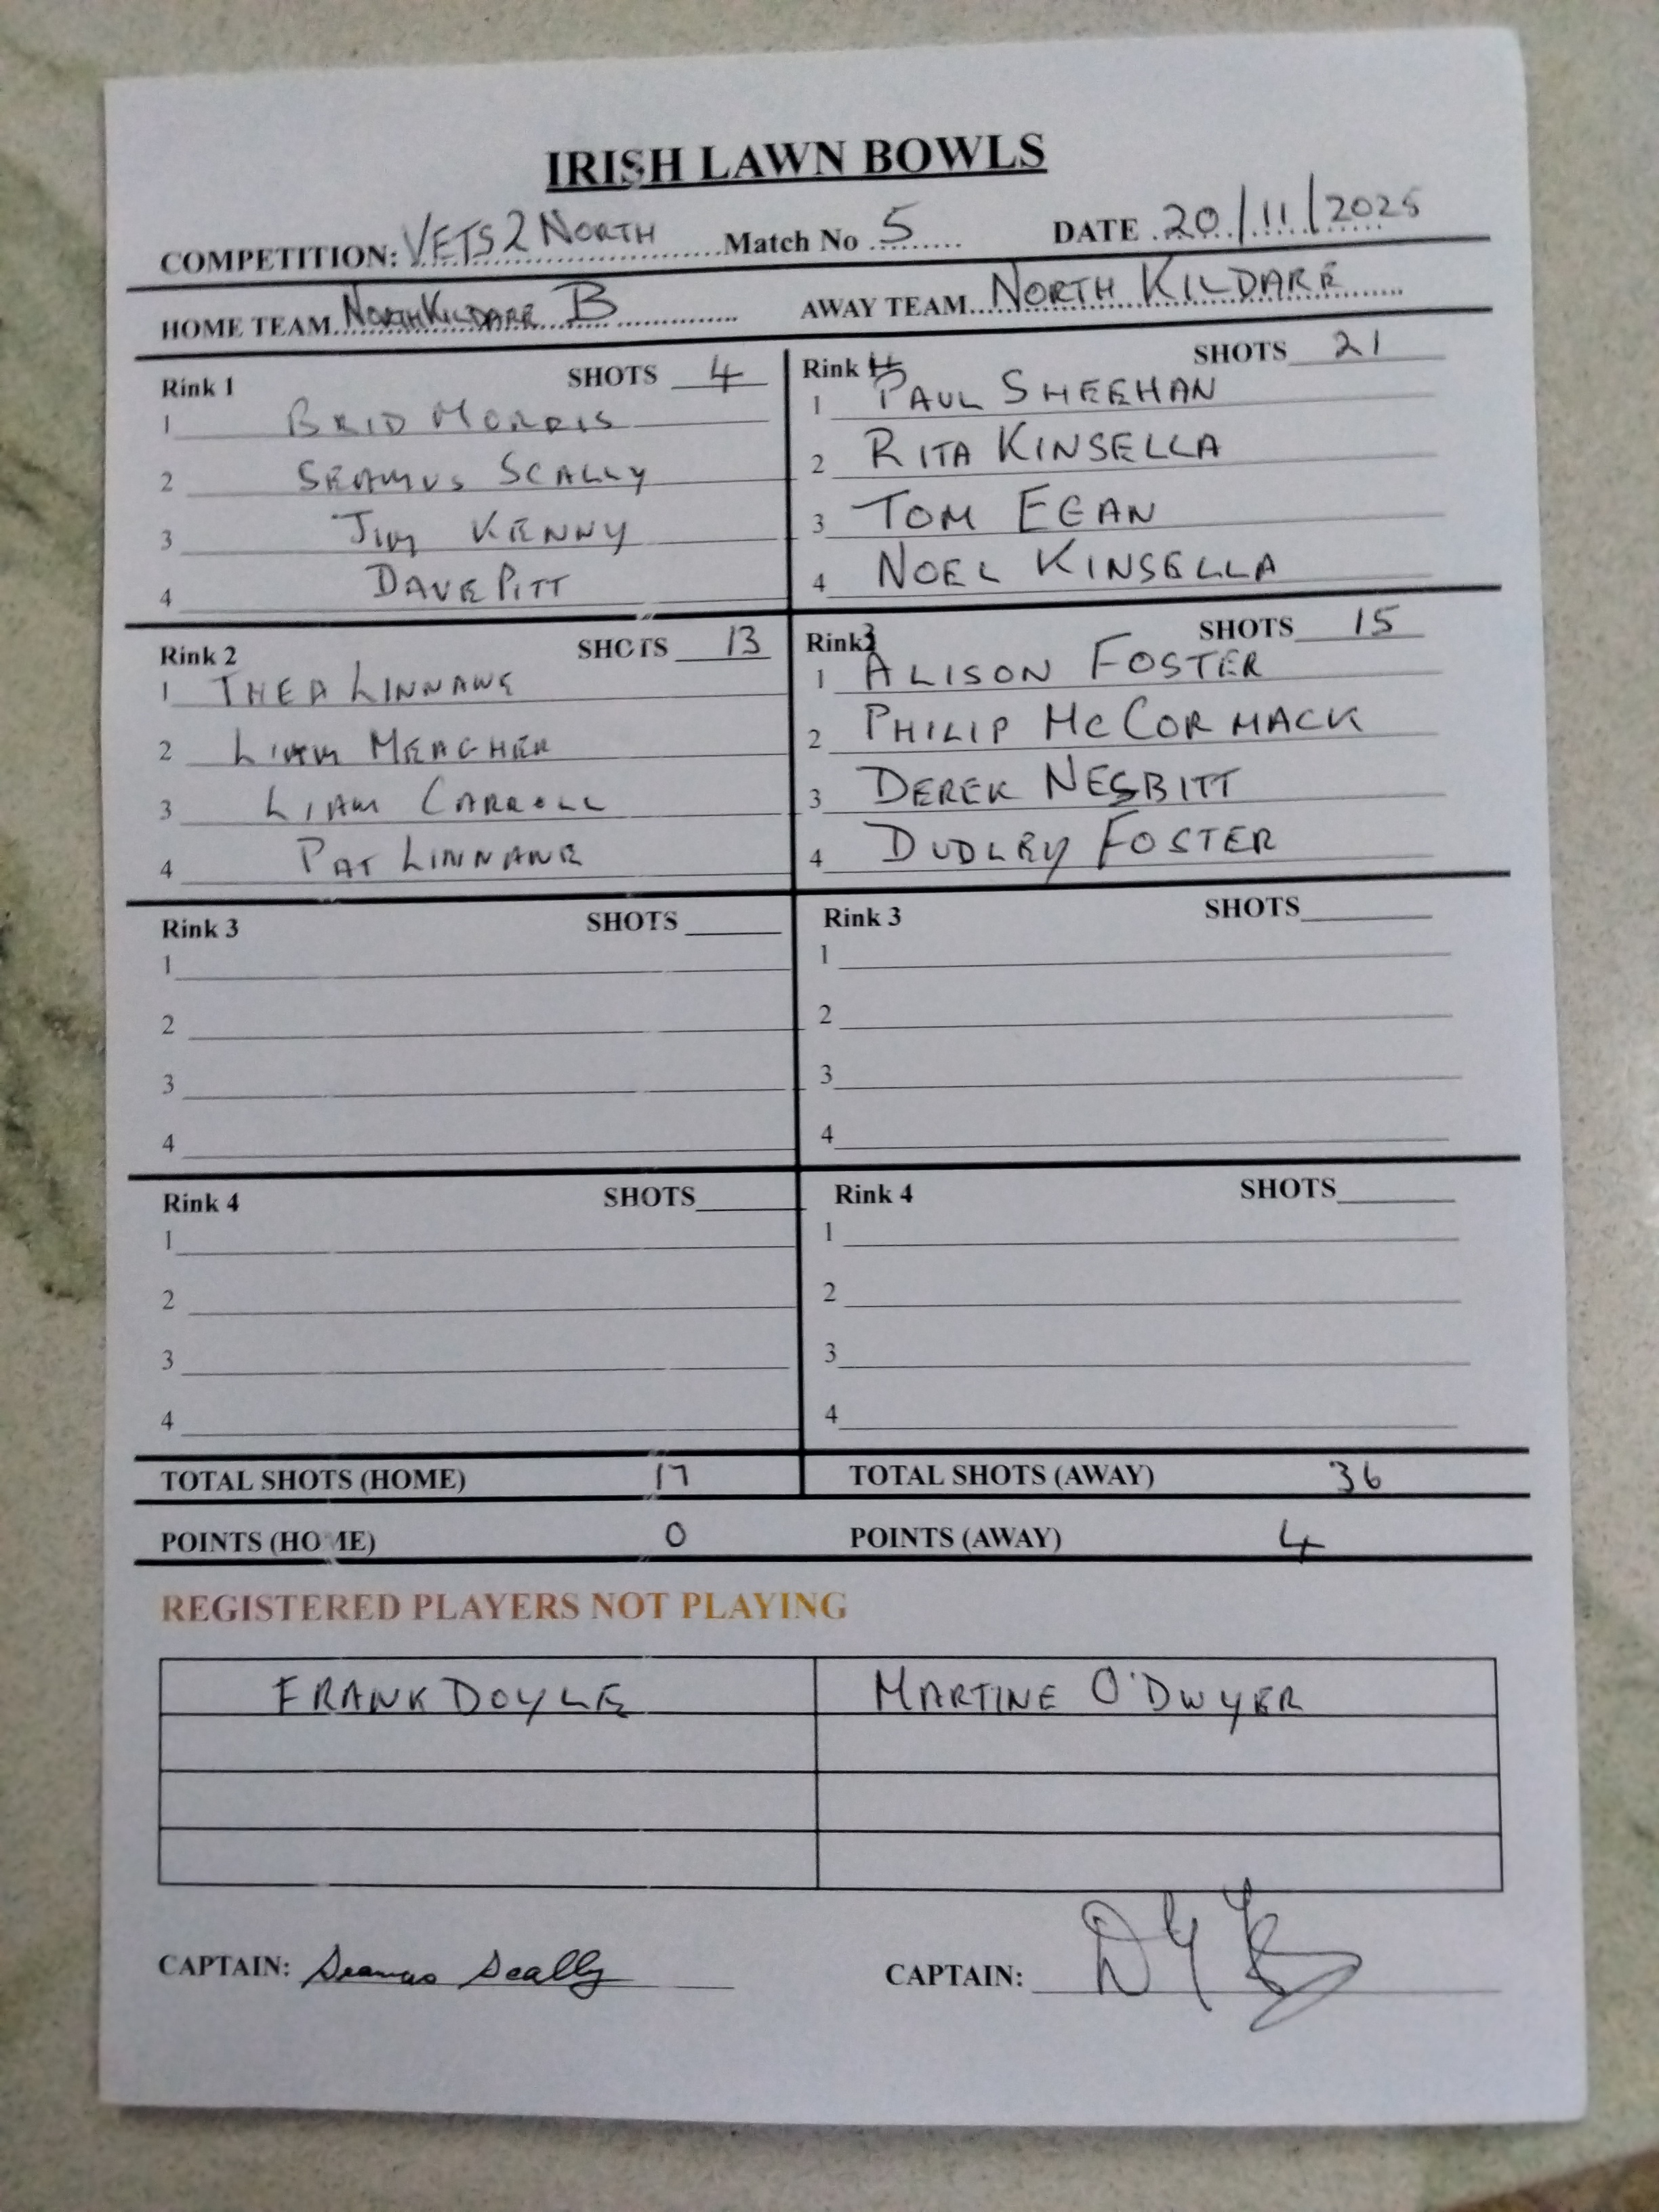 IRISH LAWN BOWLS
COMPETITION: VETS 2 NORTH Match No 5 DATE 20/11/2025
HOME TEAM NORTH KILDARE B AWAY TEAM NORTH KILDARE
Rink 1 SHOTS 4
1 BRID MORRIS
2 SEAMUS SCALLY
3 JIM KENNY
4 DAVE PITT
Rink 5 SHOTS 21
1 PAUL SHEEHAN
2 RITA KINSELLA
3 TOM EGAN
4 NOEL KINSELLA
Rink 2 SHOTS 13
1 THEA LINNANE
2 LIAM MEAGHER
3 LIAM CARROLL
4 PAT LINNANE
Rink 3 SHOTS 15
1 ALISON FOSTER
2 PHILIP MCCORMACK
3 DEREK NESBITT
4 DUDLEY FOSTER
Rink 3 SHOTS
1
2
3
4
Rink 3 SHOTS
1
2
3
4
Rink 4 SHOTS
1
2
3
4
Rink 4 SHOTS
1
2
3
4
TOTAL SHOTS (HOME) 17 TOTAL SHOTS (AWAY) 36
POINTS (HOME) 0 POINTS (AWAY) 4
REGISTERED PLAYERS NOT PLAYING
FRANK DOYLE MARTINE O'DWYER
CAPTAIN: Seamus Scally CAPTAIN: